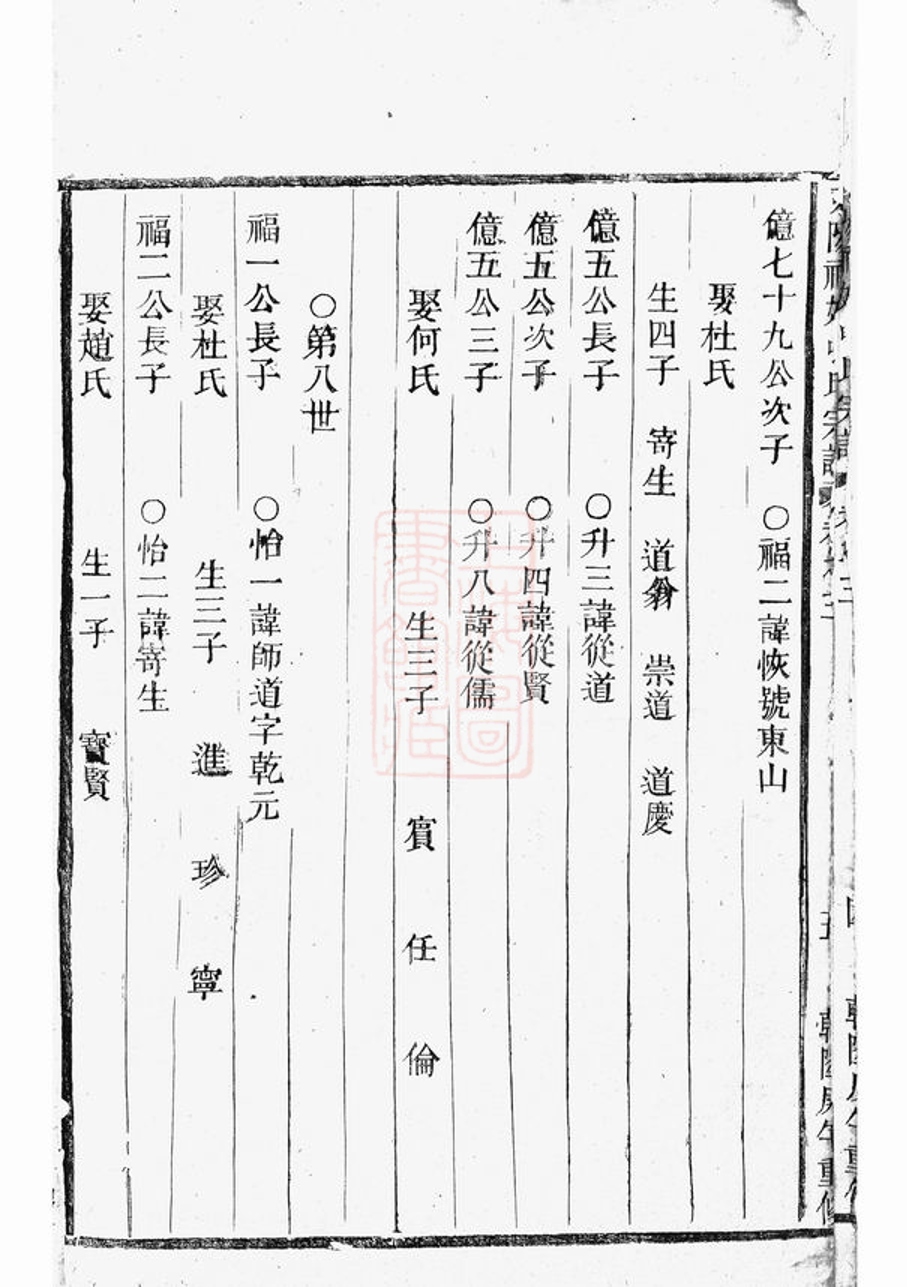 億七十九公次子　○福二諱恢號東山
娶杜氏
生四子　寄生　道翁　崇道　道慶
億五公長子　○升三諱從道
億五公次子　○升四諱從賢
億五公三子　○升八諱從儒
娶何氏　生三子　賔　任　倫
○第八世
福一公長子　○怡一諱師道字乾元
娶杜氏　生三子　進　珍　寧
福二公長子　○怡二諱寄生
娶趙氏　生一子　寶賢